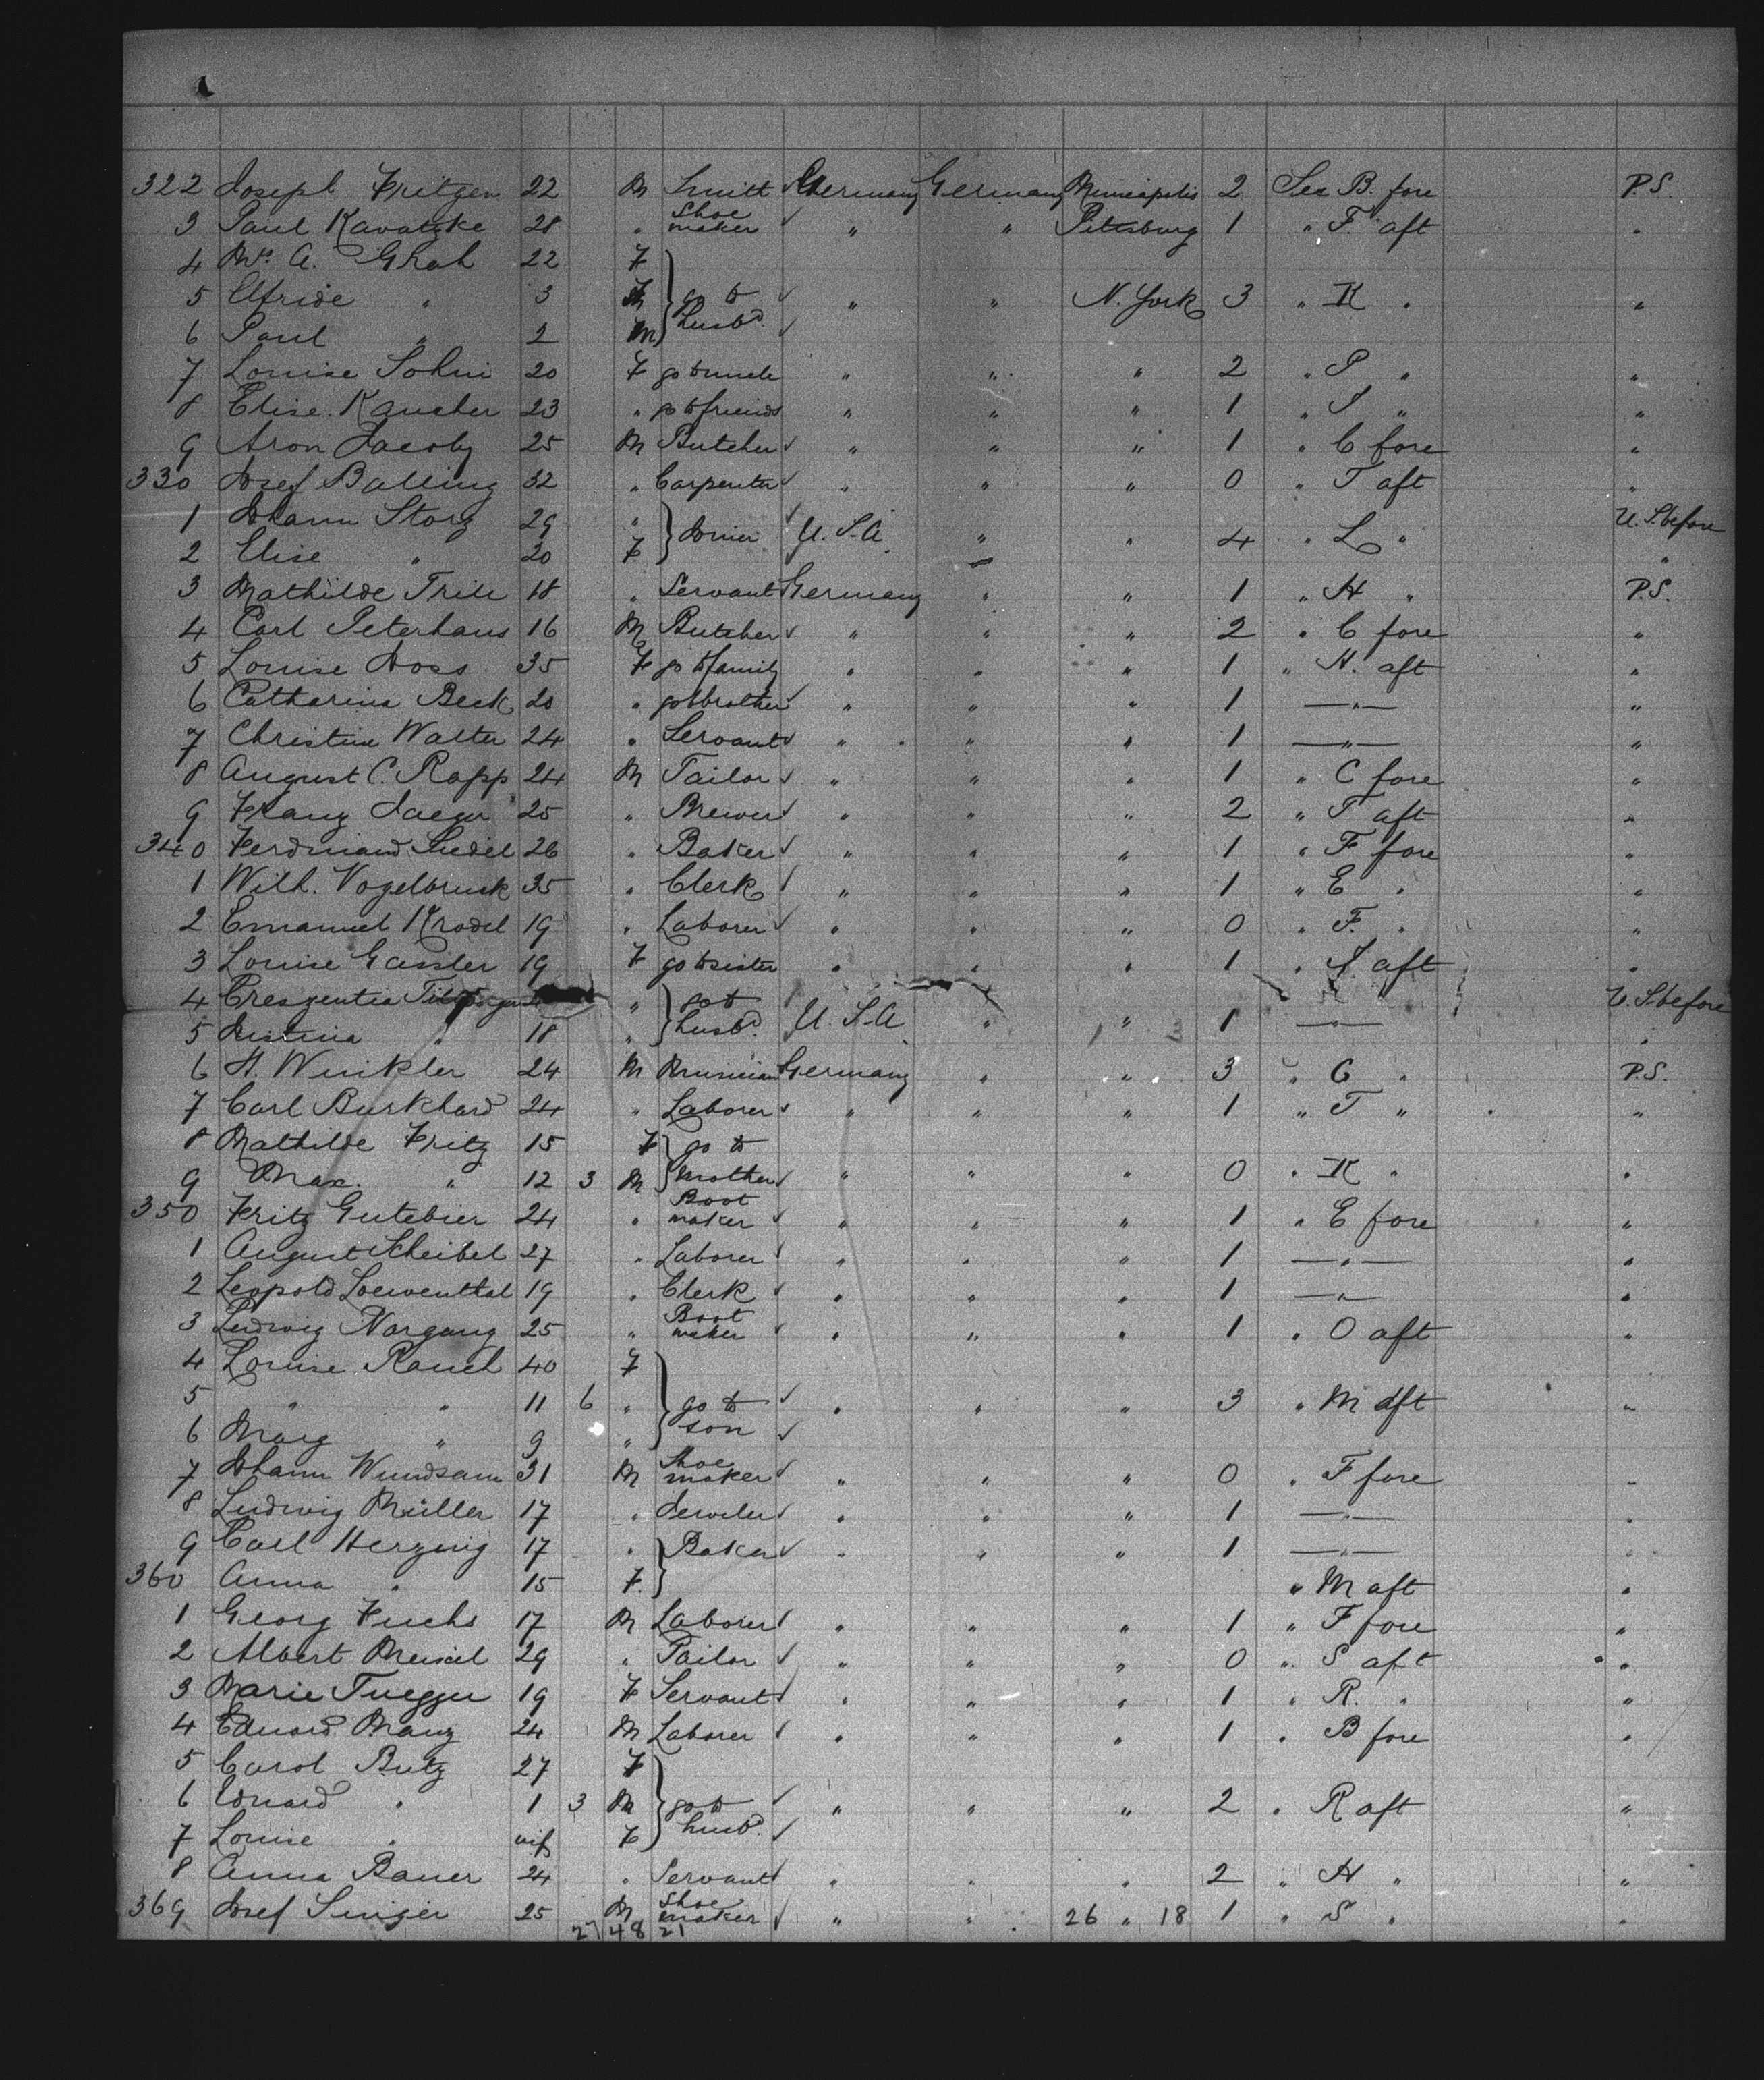 322 Joseph Fritzen 22 M Smitt Germany Germany Minneapolis 2 Sec B. fore P.S.
3 Paul Kavatzke 28 " Shoe maker ✓ " " Pittsburg 1 " F. aft "
4 Mrs. A. Grah 22 F
5 Elfride " 3 go to ✓ " " N. York 3 " K " "
6 Paul " 2 M husbd. ✓
7 Louise Sohni 20 F go to uncle " " " 2 " P " "
8 Elise Kaucher 23 " go to friends " " " 1 " S " "
9 Aron Jacoby 25 M Butcher ✓ " " " 1 " C fore "
330 Josef Balling 32 " Carpenter ✓ " " " 0 " T aft "
1 Johann Storz 29 " ✓ U. S. before
2 Elise " 20 F Joiner U. S. A. " " 4 " L " "
3 Mathilde 18 " Servant Germany " " 1 " H " P.S.
4 Carl Peterhans 16 M Butcher ✓ " " " 2 " C fore "
5 Louise Joss 35 F go to family " " " 1 " H. aft "
6 Catharina Beck 20 " go to brother ✓ " " " 1 —"— "
7 Christine Walter 24 " Servant ✓ " " " 1 —"— "
8 August C. Rapp 24 M Tailor ✓ " " " 1 " C fore "
9 Franz Jaeger 25 " Brewer ✓ " " " 2 " T aft "
340 Ferdinand Siedel 26 " Baker ✓ " " " 1 " F fore "
1 Wilh. Vogelbruck 35 " Clerk ✓ " " " 1 " E " "
2 Emanuel Krodel 19 " Laborer ✓ " " " 0 " F. " "
3 Louise Gassler 19 F go to sister " " " 1 " S aft "
4 Creszentia " go to U. S. before
5 Justina " 18 " husbd. U. S. A " " 1 —"— "
6 H. Winkler 24 M Musician Germany " " 3 " G " P.S.
7 Carl Burkhard 24 " Laborer ✓ " " " 1 " T " "
8 Mathilde Fritz 15 F go to
9 Max. " 12 3 M mother ✓ " " " 0 " K " "
350 Fritz Gutebier 24 " Boot maker ✓ " " " 1 " E fore "
1 August Scheibel 27 " Laborer ✓ " " " 1 —"— "
2 Leopold Loewenthal 19 " Clerk ✓ " " " 1 —"— "
3 Ludwig Nargang 25 " Boot maker ✓ " " " 1 " O aft "
4 Louise Rauch 40 F
5 " " 11 6 " go to ✓ " " " 3 " M aft "
6 Marg " 9 " son ✓
7 Johann Wundsam 31 M Shoe maker ✓ " " " 0 " F fore "
8 Ludwig Müller 17 " Jeweler ✓ " " " 1 —"— "
9 Carl Herzing 17 " Baker ✓ " " " 1 —"— "
360 Anna " 15 F. " M aft "
1 Georg Fuchs 17 M Laborer ✓ " " " 1 " F fore "
2 Albert Meisel 29 " Tailor ✓ " " " 0 " S aft "
3 Marie Tuegger 19 F Servant ✓ " " " 1 " R. " "
4 Eduard Manz 24 M Laborer ✓ " " " 1 " B fore "
5 Carol Butz 27 F
6 Eduard " 1 3 M go to ✓ " " " 2 " R aft "
7 Louise " inf F husbd. ✓
8 Anna Bauer 24 " Servant ✓ " " " 2 " H " "
369 Josef Singer 25 M Shoe maker ✓ " " 26 " 18 1 " S " "
27 48 21